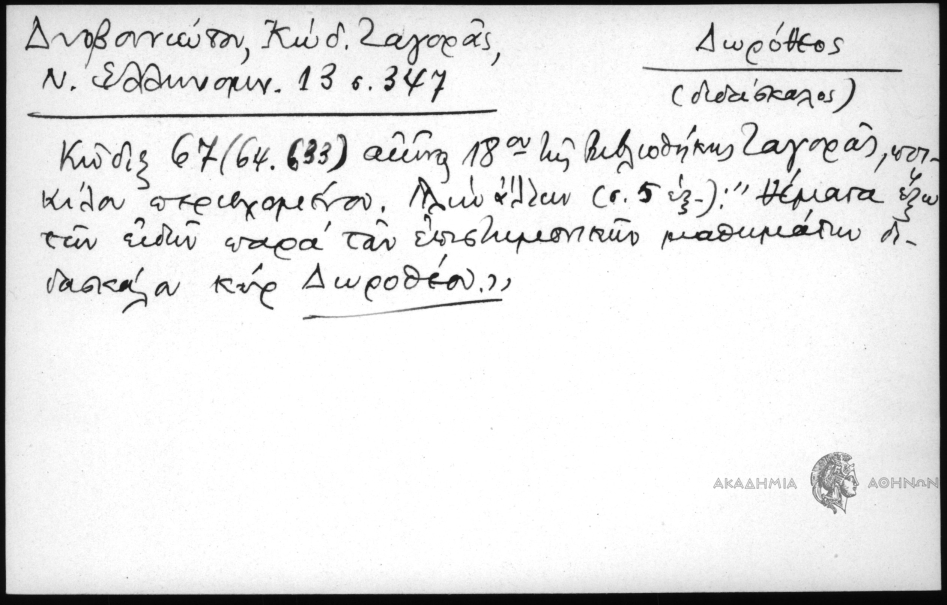 Δυοβουνιώτου, Κώδ. Ζαγορᾶς,
Ν. Ἑλληνομν. 13 σ. 347
Δωρόθεος
(διδάσκαλος)
Κῶδιξ 67 (64. 633) αἰῶνος 18ου τῆς Βιβλιοθήκης Ζαγορᾶς, ποι-
κίλου περιεχομένου. Μεταξὺ ἄλλων (σ. 5 ἑξ.): "Θέματα ἔξω
τῶν εἰδῶν παρὰ τῶν ἐπιστημονικῶν μαθημάτων δι-
δασκάλου κὺρ Δωροθέου."
ΑΚΑΔΗΜΙΑ ΑΘΗΝΩΝ